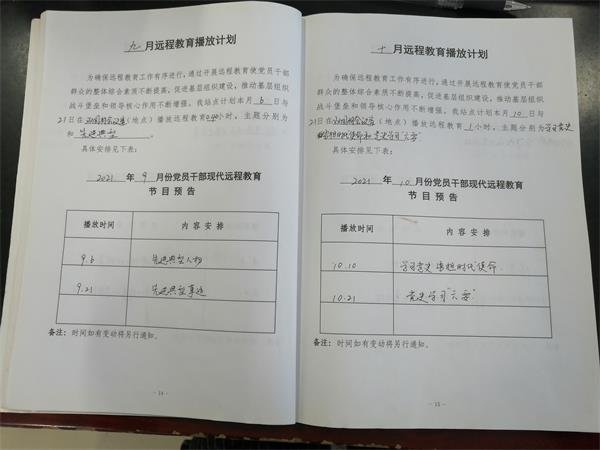 九月远程教育播放计划
为确保远程教育工作有序进行,通过开展远程教育使党员干部
群众的整体综合素质不断提高,促进基层组织建设,推动基层组织
战斗堡垒和领导核心作用不断增强。我站点计划本月6日与
21日在会议室(地点)播放远程教育小时,主题分别为
和先进典型。
具体安排见下表:
2021年9月份党员干部现代远程教育
节目预告
播放时间 内容安排
9.6 先进典型人物
9.21 先进典型事迹
备注:时间如有变动将另行通知。
-14-
十月远程教育播放计划
为确保远程教育工作有序进行,通过开展远程教育使党员干部
群众的整体综合素质不断提高,促进基层组织建设,推动基层组织
战斗堡垒和领导核心作用不断增强。我站点计划本月10日与
21日在会议室(地点)播放远程教育1小时,主题分别为学习党史
担时代使命和党史学习“六要”
具体安排见下表:
2021年10月份党员干部现代远程教育
节目预告
播放时间 内容安排
10.10 学习党史 勇担时代使命
10.21 党史学习“六要”
备注:时间如有变动将另行通知。
-15-